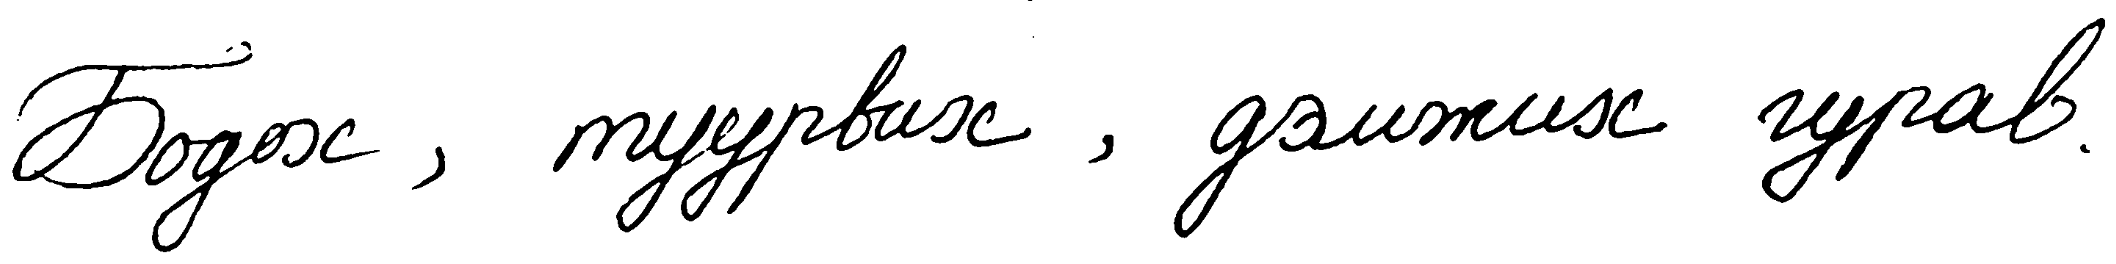 Бодох, туурвих, дэмжих гурав.